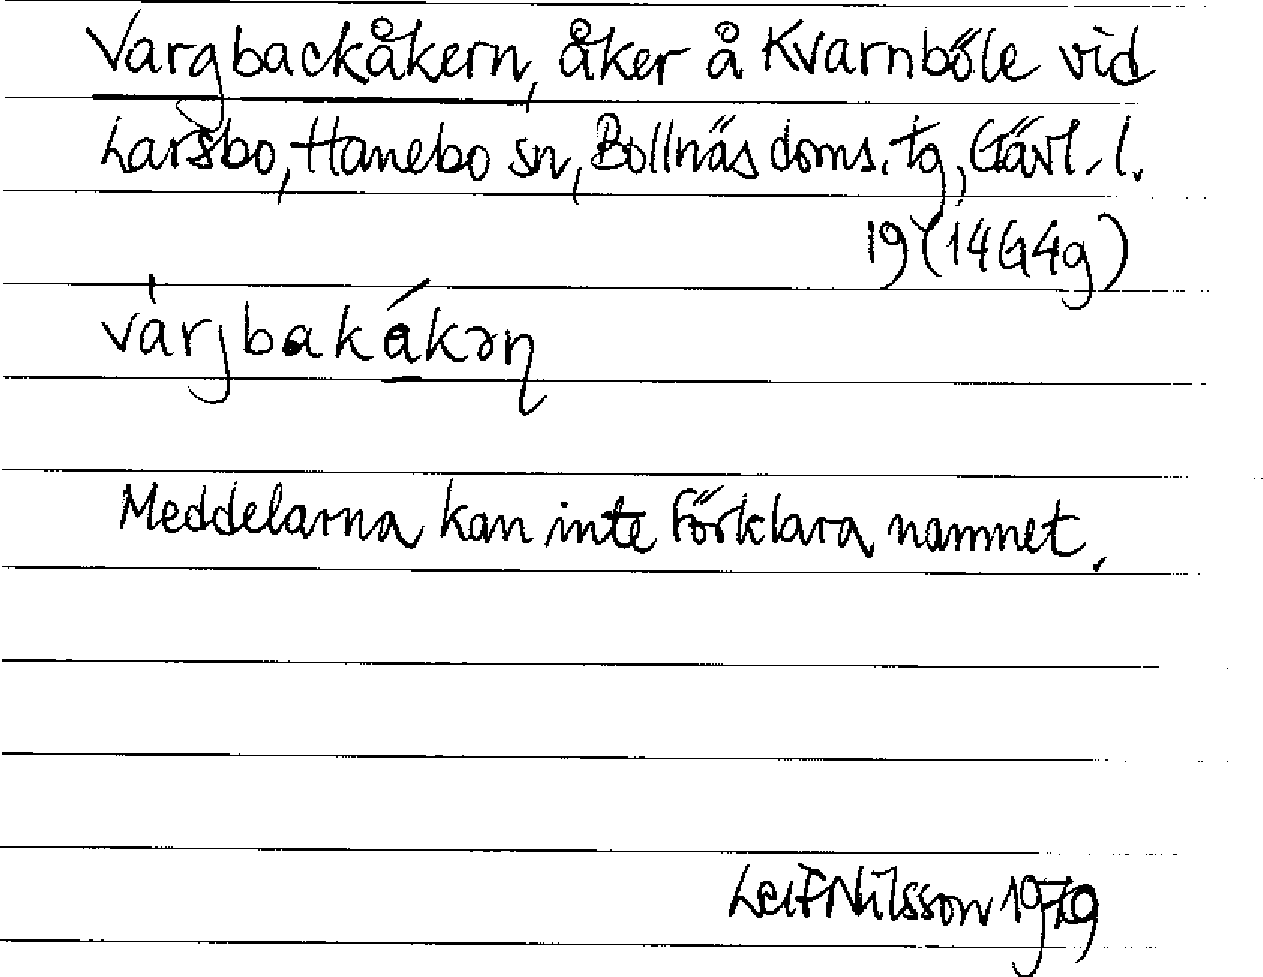 Vargbackåkern, åker å Kvarnböle vid
Larsbo, Hanebo sn, Bollnäs doms. tg, Gävl. l.
19 (14G4g)
várjbakákəɳ
Meddelarna kan inte förklara namnet.
Leif Nilsson 1979